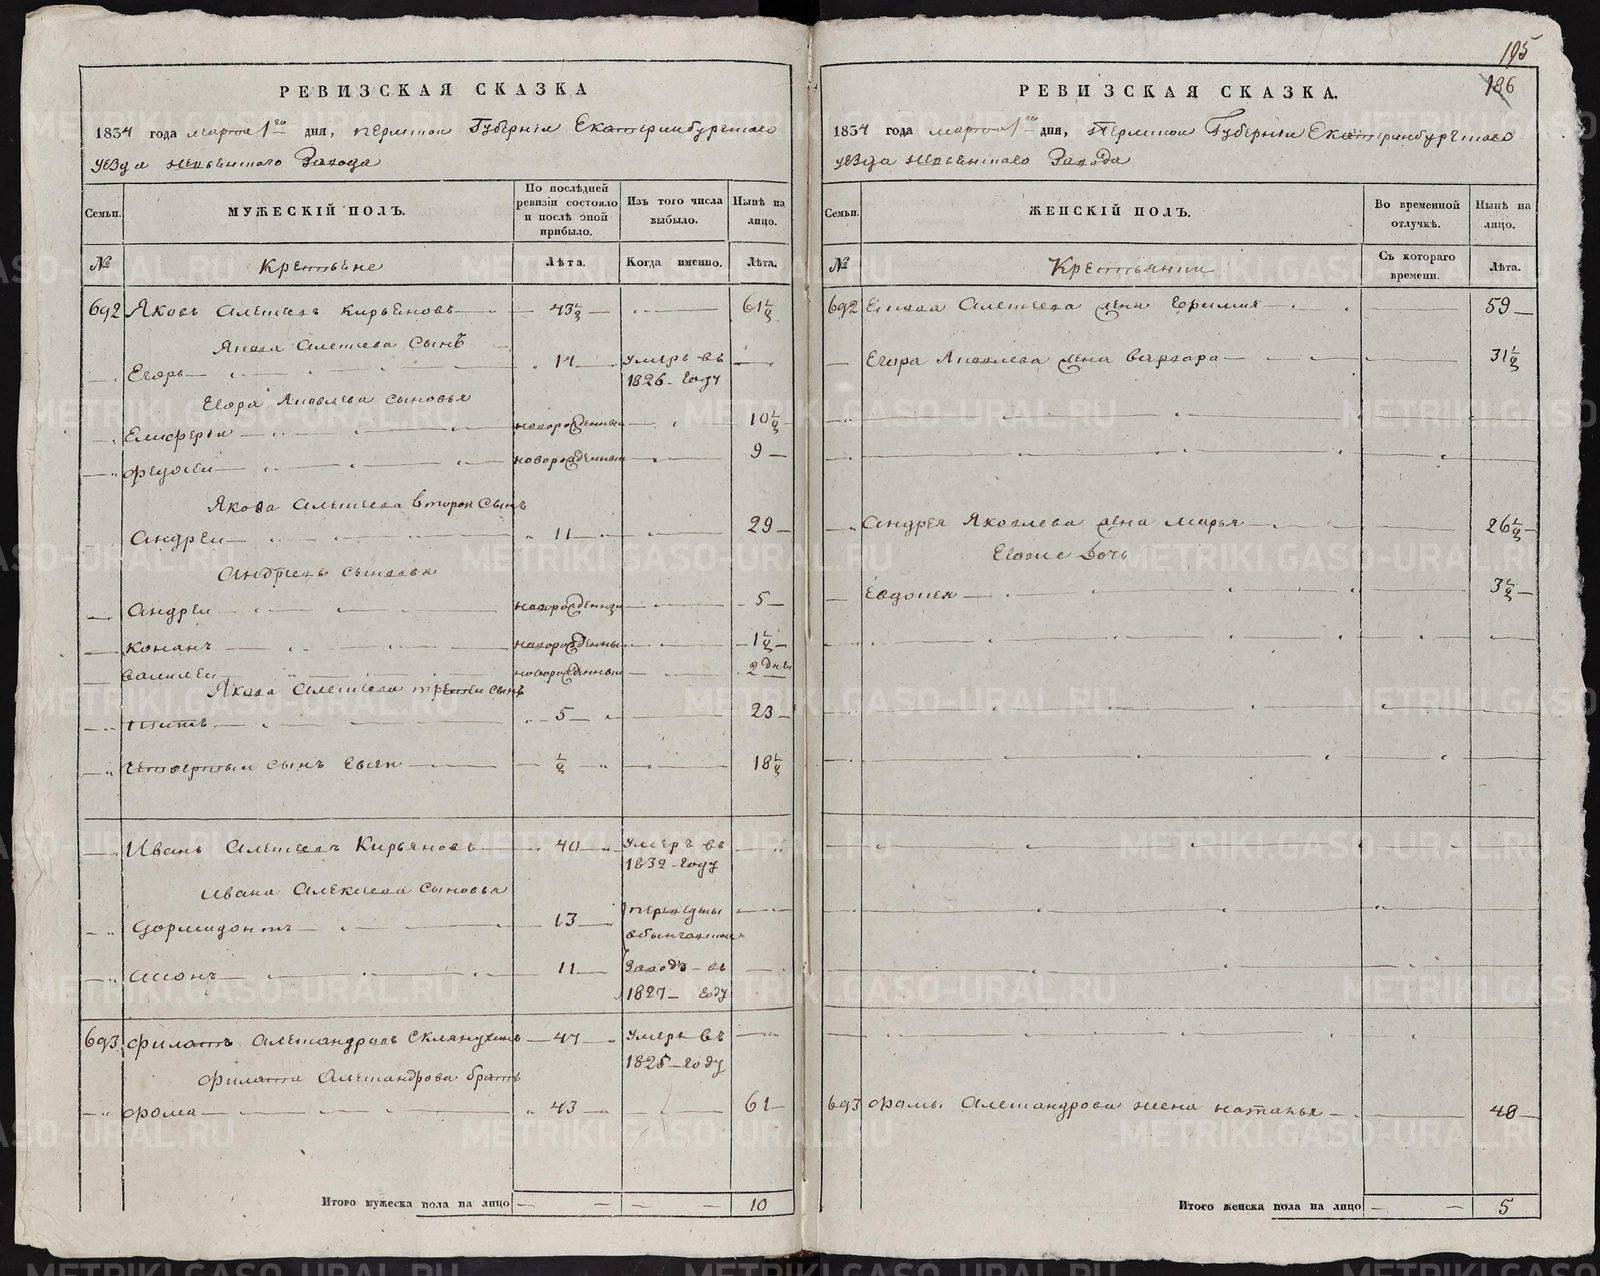 РЕВИЗСКАЯ СКАЗКА
1834 года марта 1го дня, Пермской Губернiи Екатеринбургскаго
уѣзда Невьянскаго Завода
Семьи.
МУЖЕСКІЙ ПОЛЪ.
По послѣдней ревизіи состояло и послѣ оной прибыло.
Изъ того числа выбыло.
Нынѣ на лицо.
№
Крестьяне
Лѣта.
Когда именно.
Лѣта.
692 Яковъ Алексѣевъ Кирьяновъ 43½ 61½
Якова Алексѣева сынъ
Егоръ 14 Умеръ въ 1826 году
Егора Яковлева сыновья
Елисѳерiй новорожденный 10½
Федосей новорожденный 9
Якова Алексѣева второй сынъ
Андрей 11 29
Андреевы сыновья
Андрей новорожденный 5
Конанъ новорожденный 1½
Василей новорожденный 2 дней
Якова Алексѣева третiй сынъ
Титъ 5 23
Четвертый сынъ Евсей ½ 18½
Иванъ Алексѣевъ Кирьяновъ 40 Умеръ въ 1832 году
Ивана Алексѣева сыновья
Дормидонтъ 13
Асонъ 11 Заводъ въ 1827 году
693 Филатъ Александровъ 47 Умеръ въ 1825 году
Филата Александрова братъ
Фома 43 61
Итого мужеска пола на лицо 10
195
186
РЕВИЗСКАЯ СКАЗКА.
1834 года марта 1го дня, Пермской Губернiи Екатеринбургскаго
уѣзда Невьянскаго Завода
Семьи.
ЖЕНСКІЙ ПОЛЪ.
Во временной отлучкѣ.
Нынѣ на лицо.
№
Крестьянки
Съ котораго времени.
Лѣта.
692 Якова Алексѣева жена Ефимия 59
Егора Яковлева жена Варвара 31½
Андрея Яковлева жена Марья 26½
Евоже дочь
Евдокея 3½
693 Фомы Александрова жена Наталья 48
Итого женска пола на лицо 5
METRIKI.GASO-URAL.RU